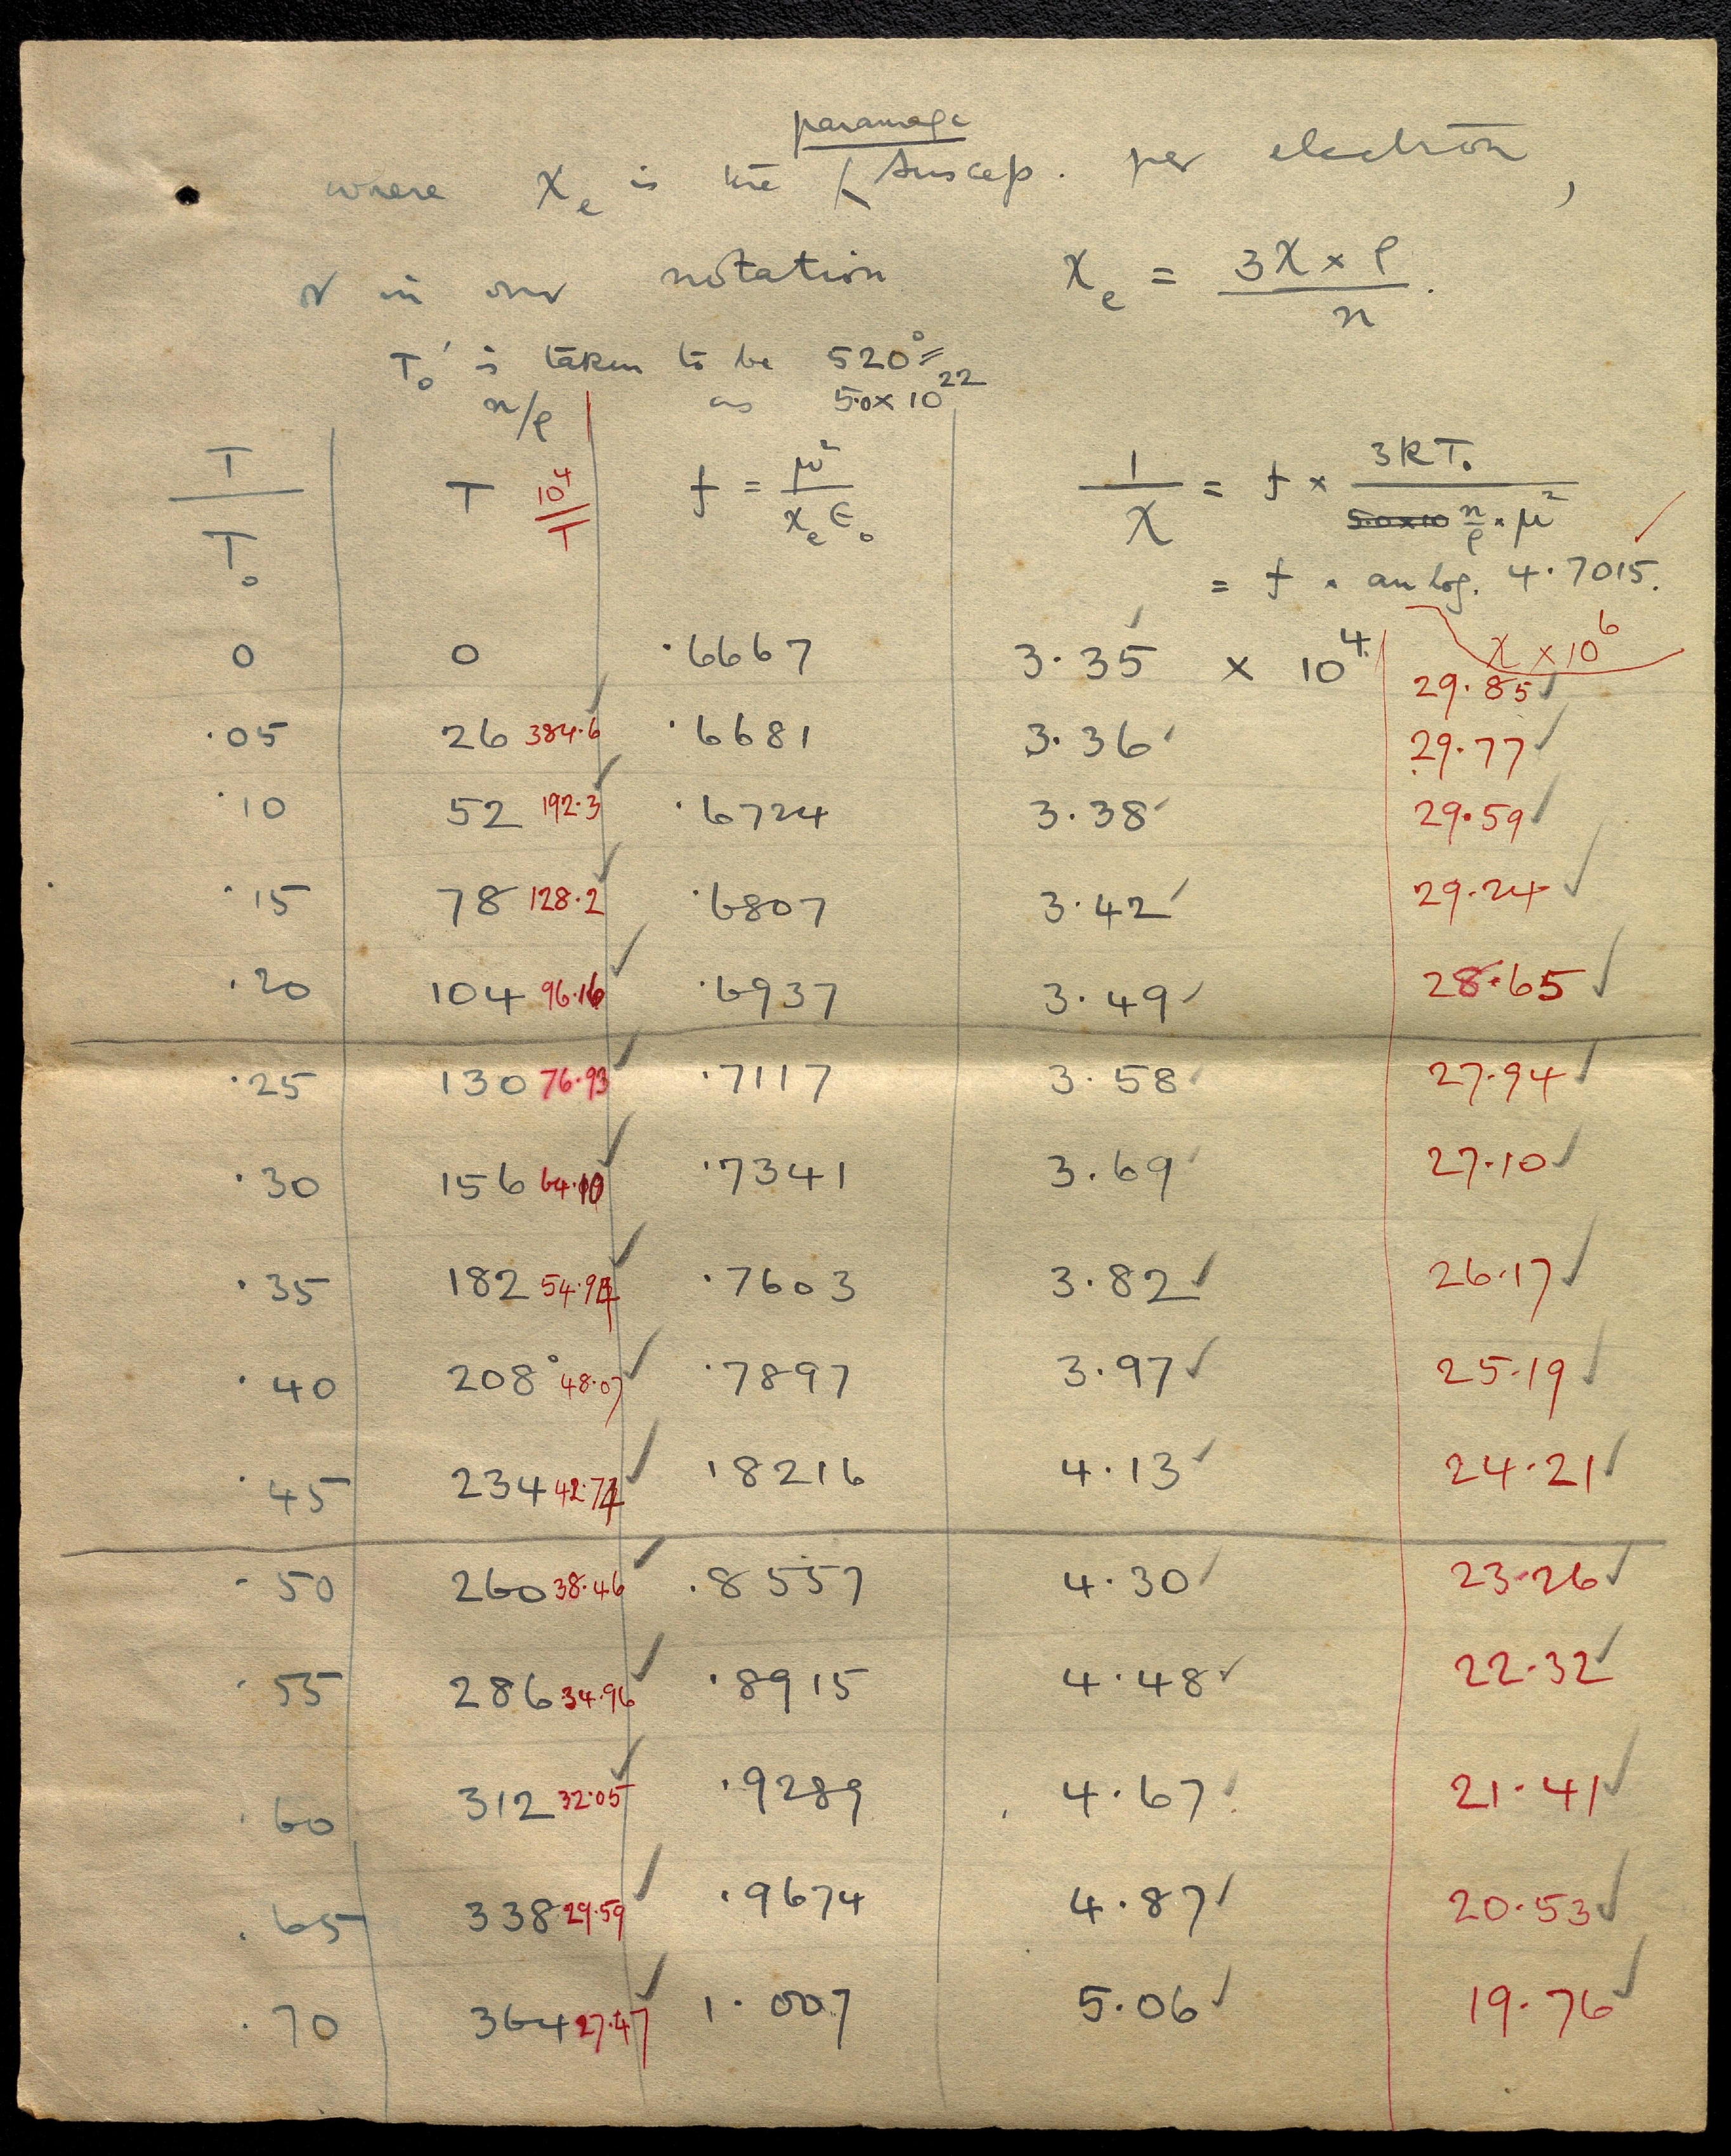 paramagc
where χₑ is the ( Suscep. per electron,
& in our notation χₑ = 3χ × ρ / n .
T₀' is taken to be 520°
n/ρ as 5.0 × 10²²
T / T₀ T 10⁴ / T f = μ² / χₑ ε₀ 1 / χ = f × 3kT₀ / 5.0×10 n/ρ × μ²
= f × an log. 4.7015.
χ × 10⁶
0 0 ·6667 3.35 × 10⁴ 29.85
·05 26 384.6 ·6681 3.36 29.77
·10 52 192.3 ·6724 3.38 29.59
·15 78 128.2 ·6807 3.42 29.24
·20 104 96.16 ·6937 3.49 28.65
·25 130 76.93 ·7117 3.58 27.94
·30 156 64.10 ·7341 3.69 27.10
·35 182 54.94 ·7603 3.82 26.17
·40 208° 48.07 ·7897 3.97 25.19
·45 234 42.74 ·8216 4.13 24.21
·50 260 38.46 ·8557 4.30 23.26
·55 286 34.96 ·8915 4.48 22.32
·60 312 32.05 ·9289 4.67 21.41
·65 338 29.59 ·9674 4.87 20.53
·70 364 27.47 1.007 5.06 19.76